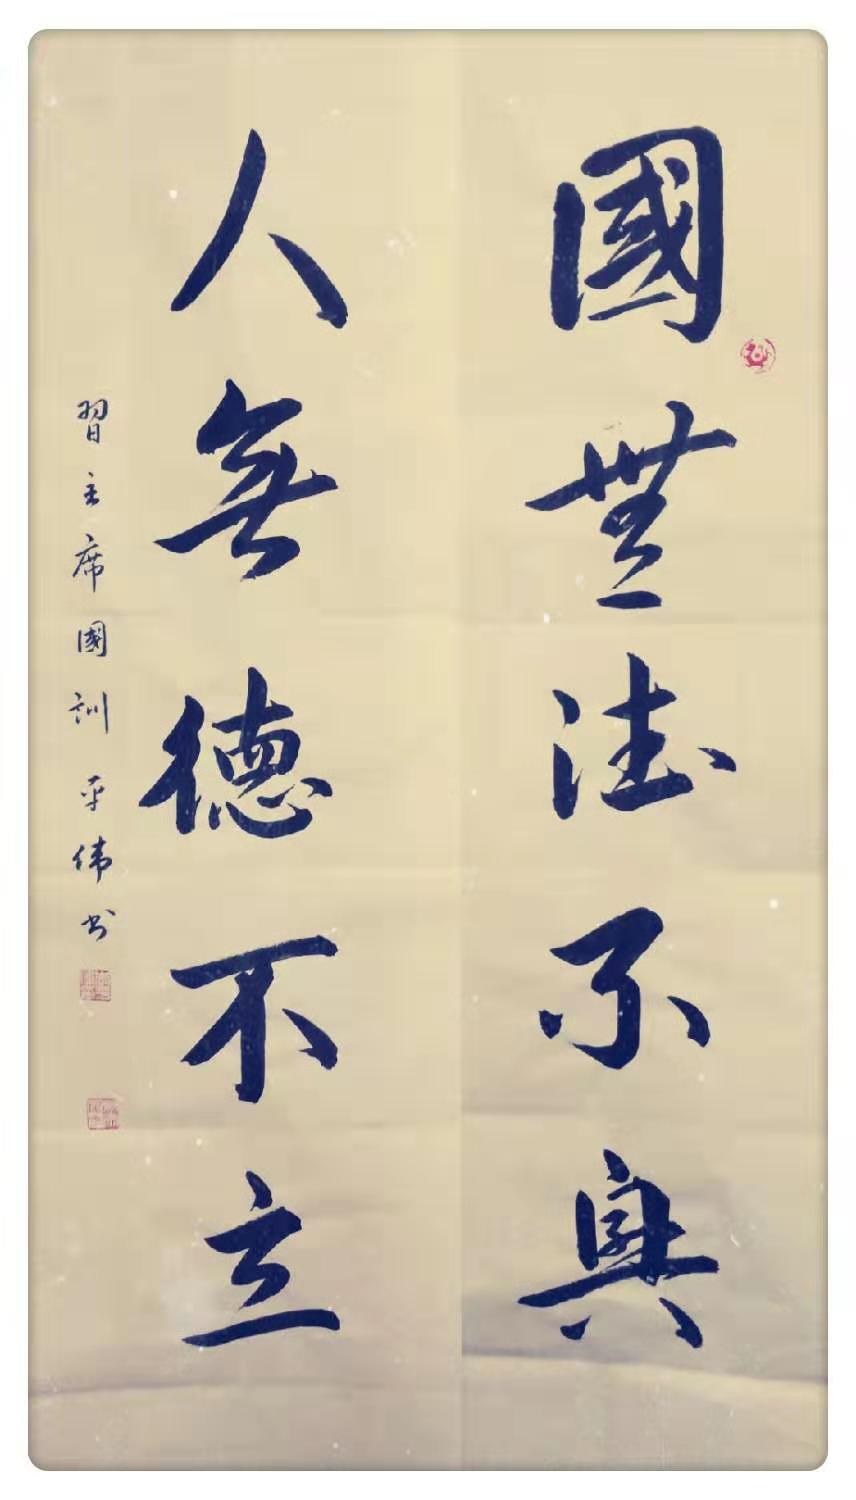 國無法不興
人無德不立
習主席國訓 平偉书